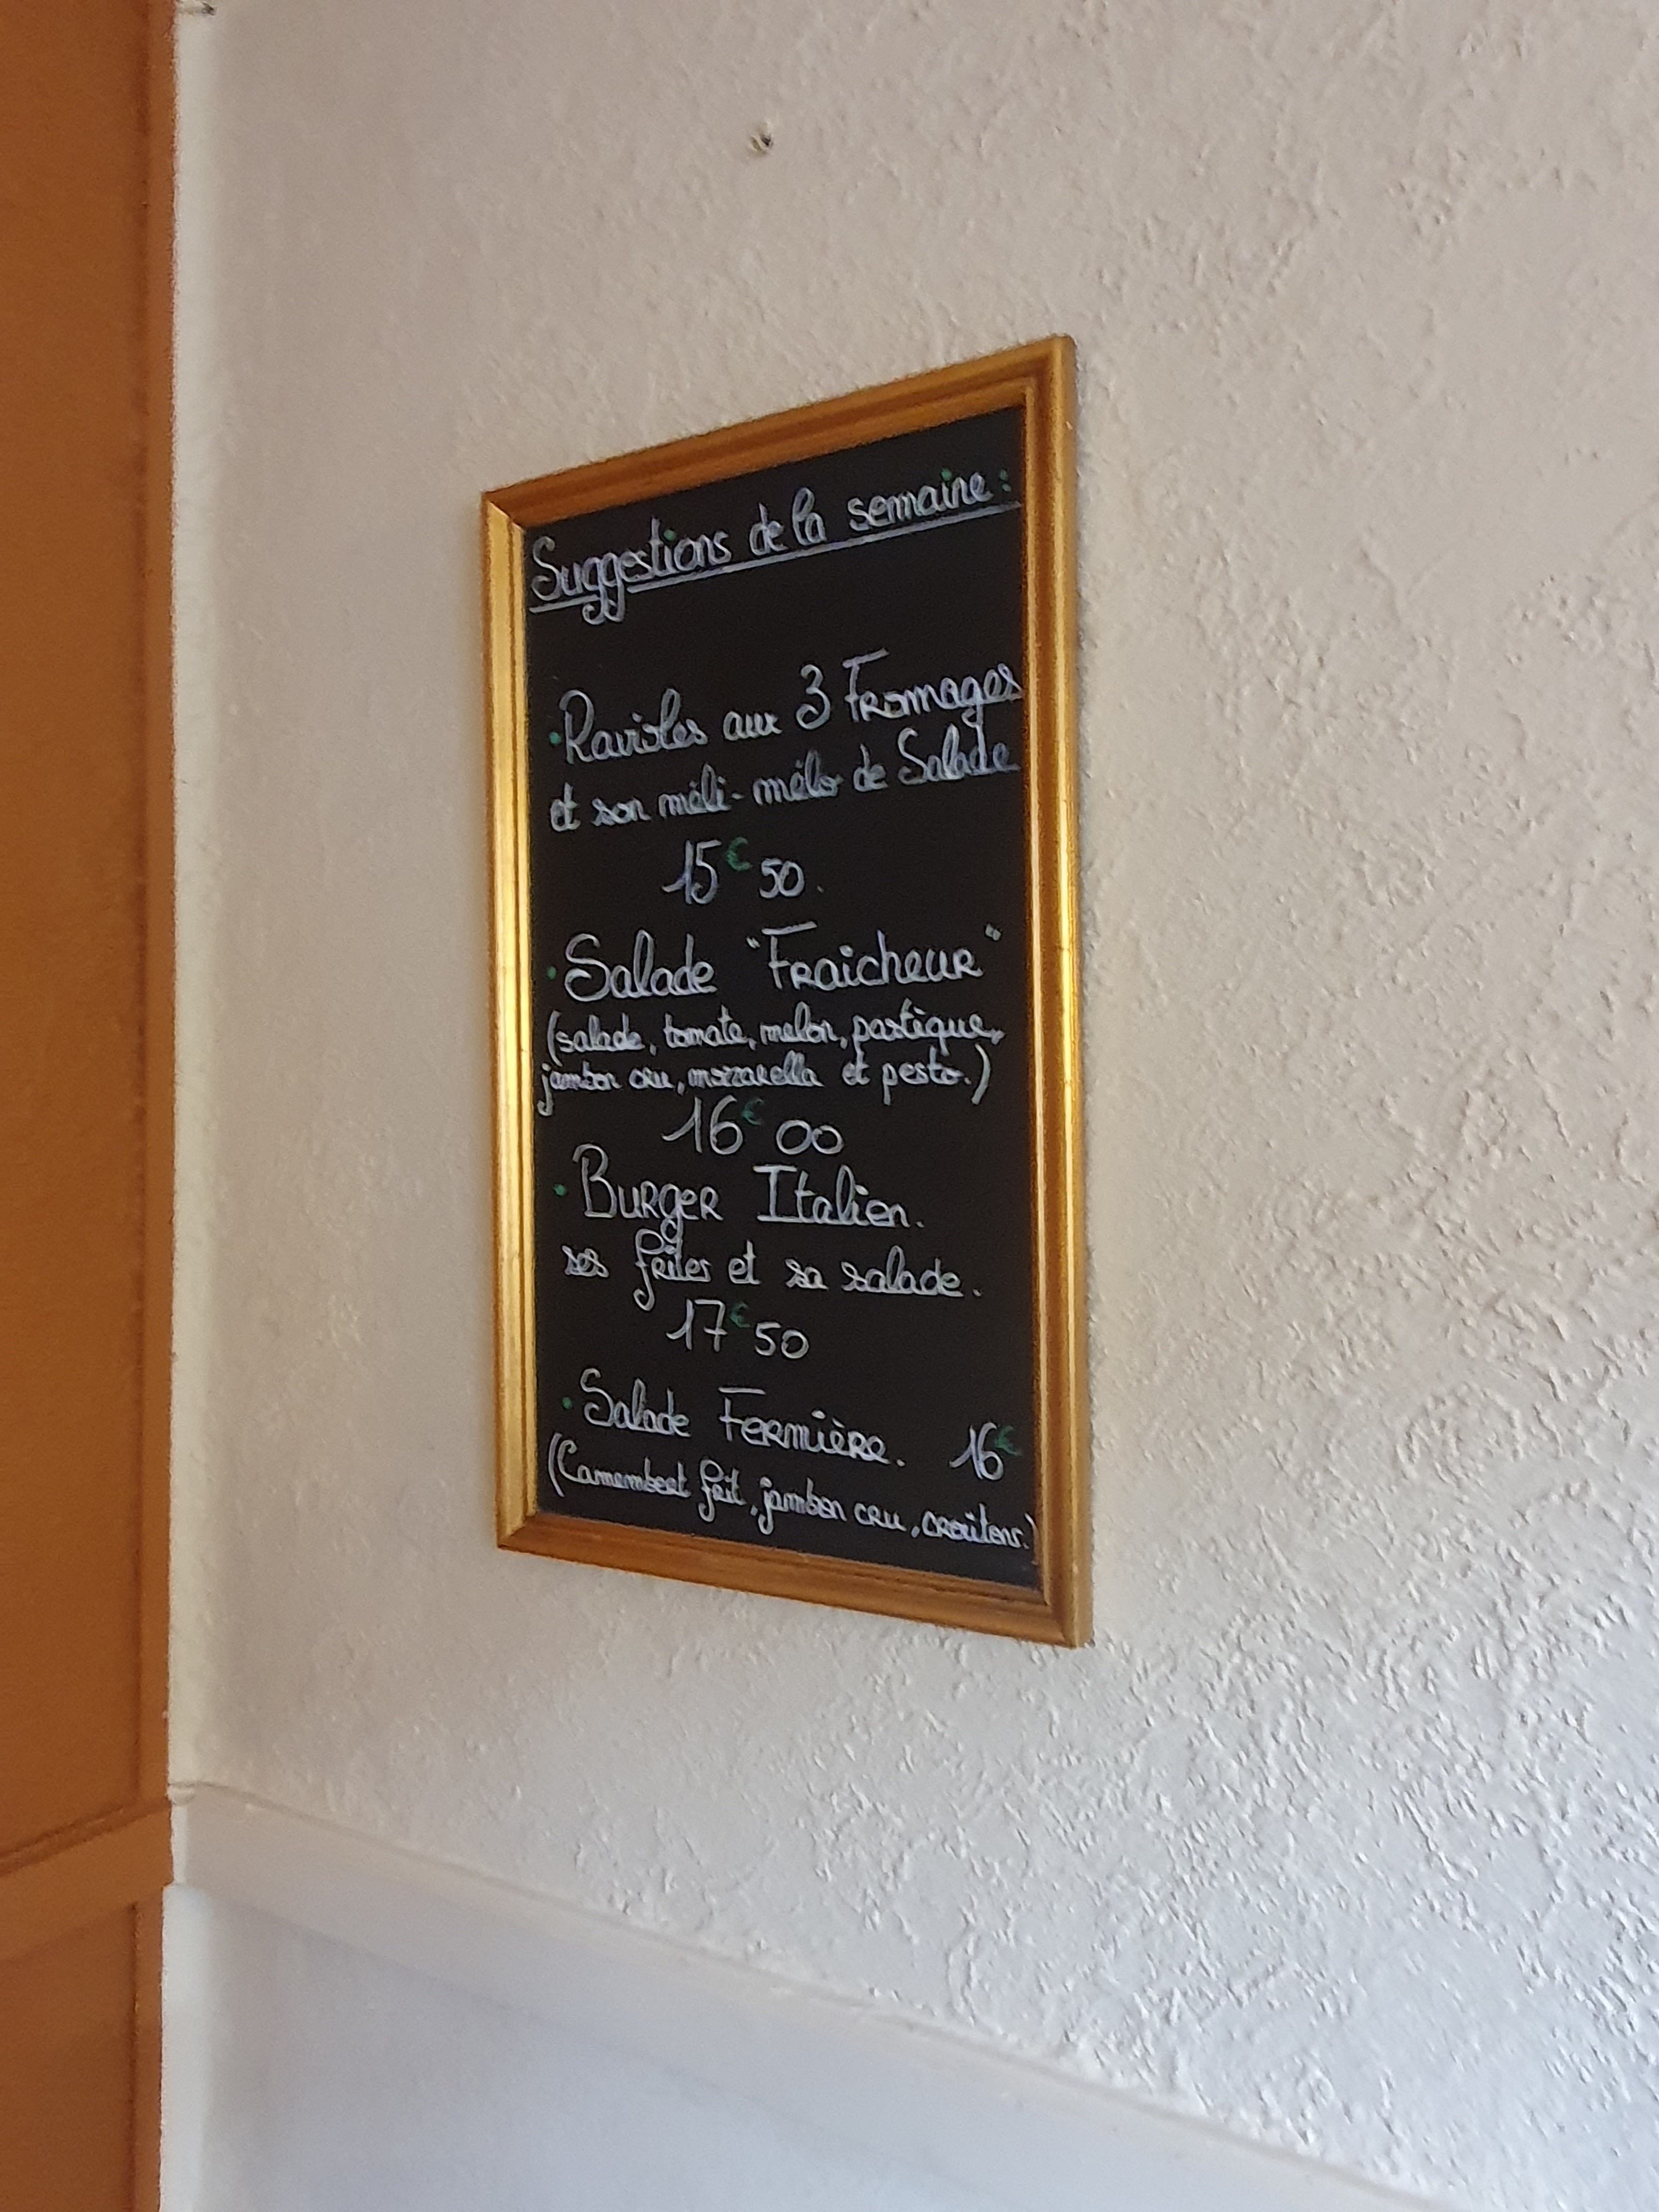 Suggestions de la semaine :
• Ravioles aux 3 Fromages
et son méli-mélo de Salade
15€50.
• Salade "Fraicheur"
(salade, tomate, melon, pastique,
jambon cru, mozzarella et pesto.)
16€00
• Burger Italien.
ses frites et sa salade.
17€50
• Salade Fermière. 16€
(Camembert frit, jambon cru, croûtons.)